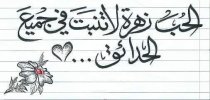 الحُبُّ زهرة لا تنبت في جميعَ
الحدائق ...